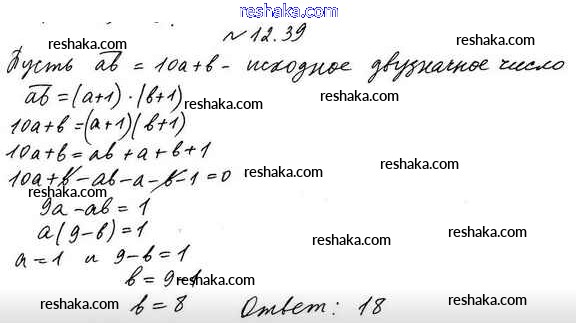 www.reshaka.com
№12.39
reshaka.com
reshaka.com
Пусть ab = 10a+b - исходное двузначное число
reshaka.com
ab = (a+1)·(b+1)
reshaka.com
10a+b = (a+1)(b+1)
reshaka.com
10a+b = ab+a+b+1
reshaka.com
10a+b-ab-a-b-1=0
reshaka.com
9a-ab = 1
reshaka.com
a(9-b) = 1
reshaka.com
a=1 и 9-b=1
reshaka.com
b = 9-1
reshaka.com
reshaka.com
b = 8 Ответ: 18
reshaka.com
reshaka.com